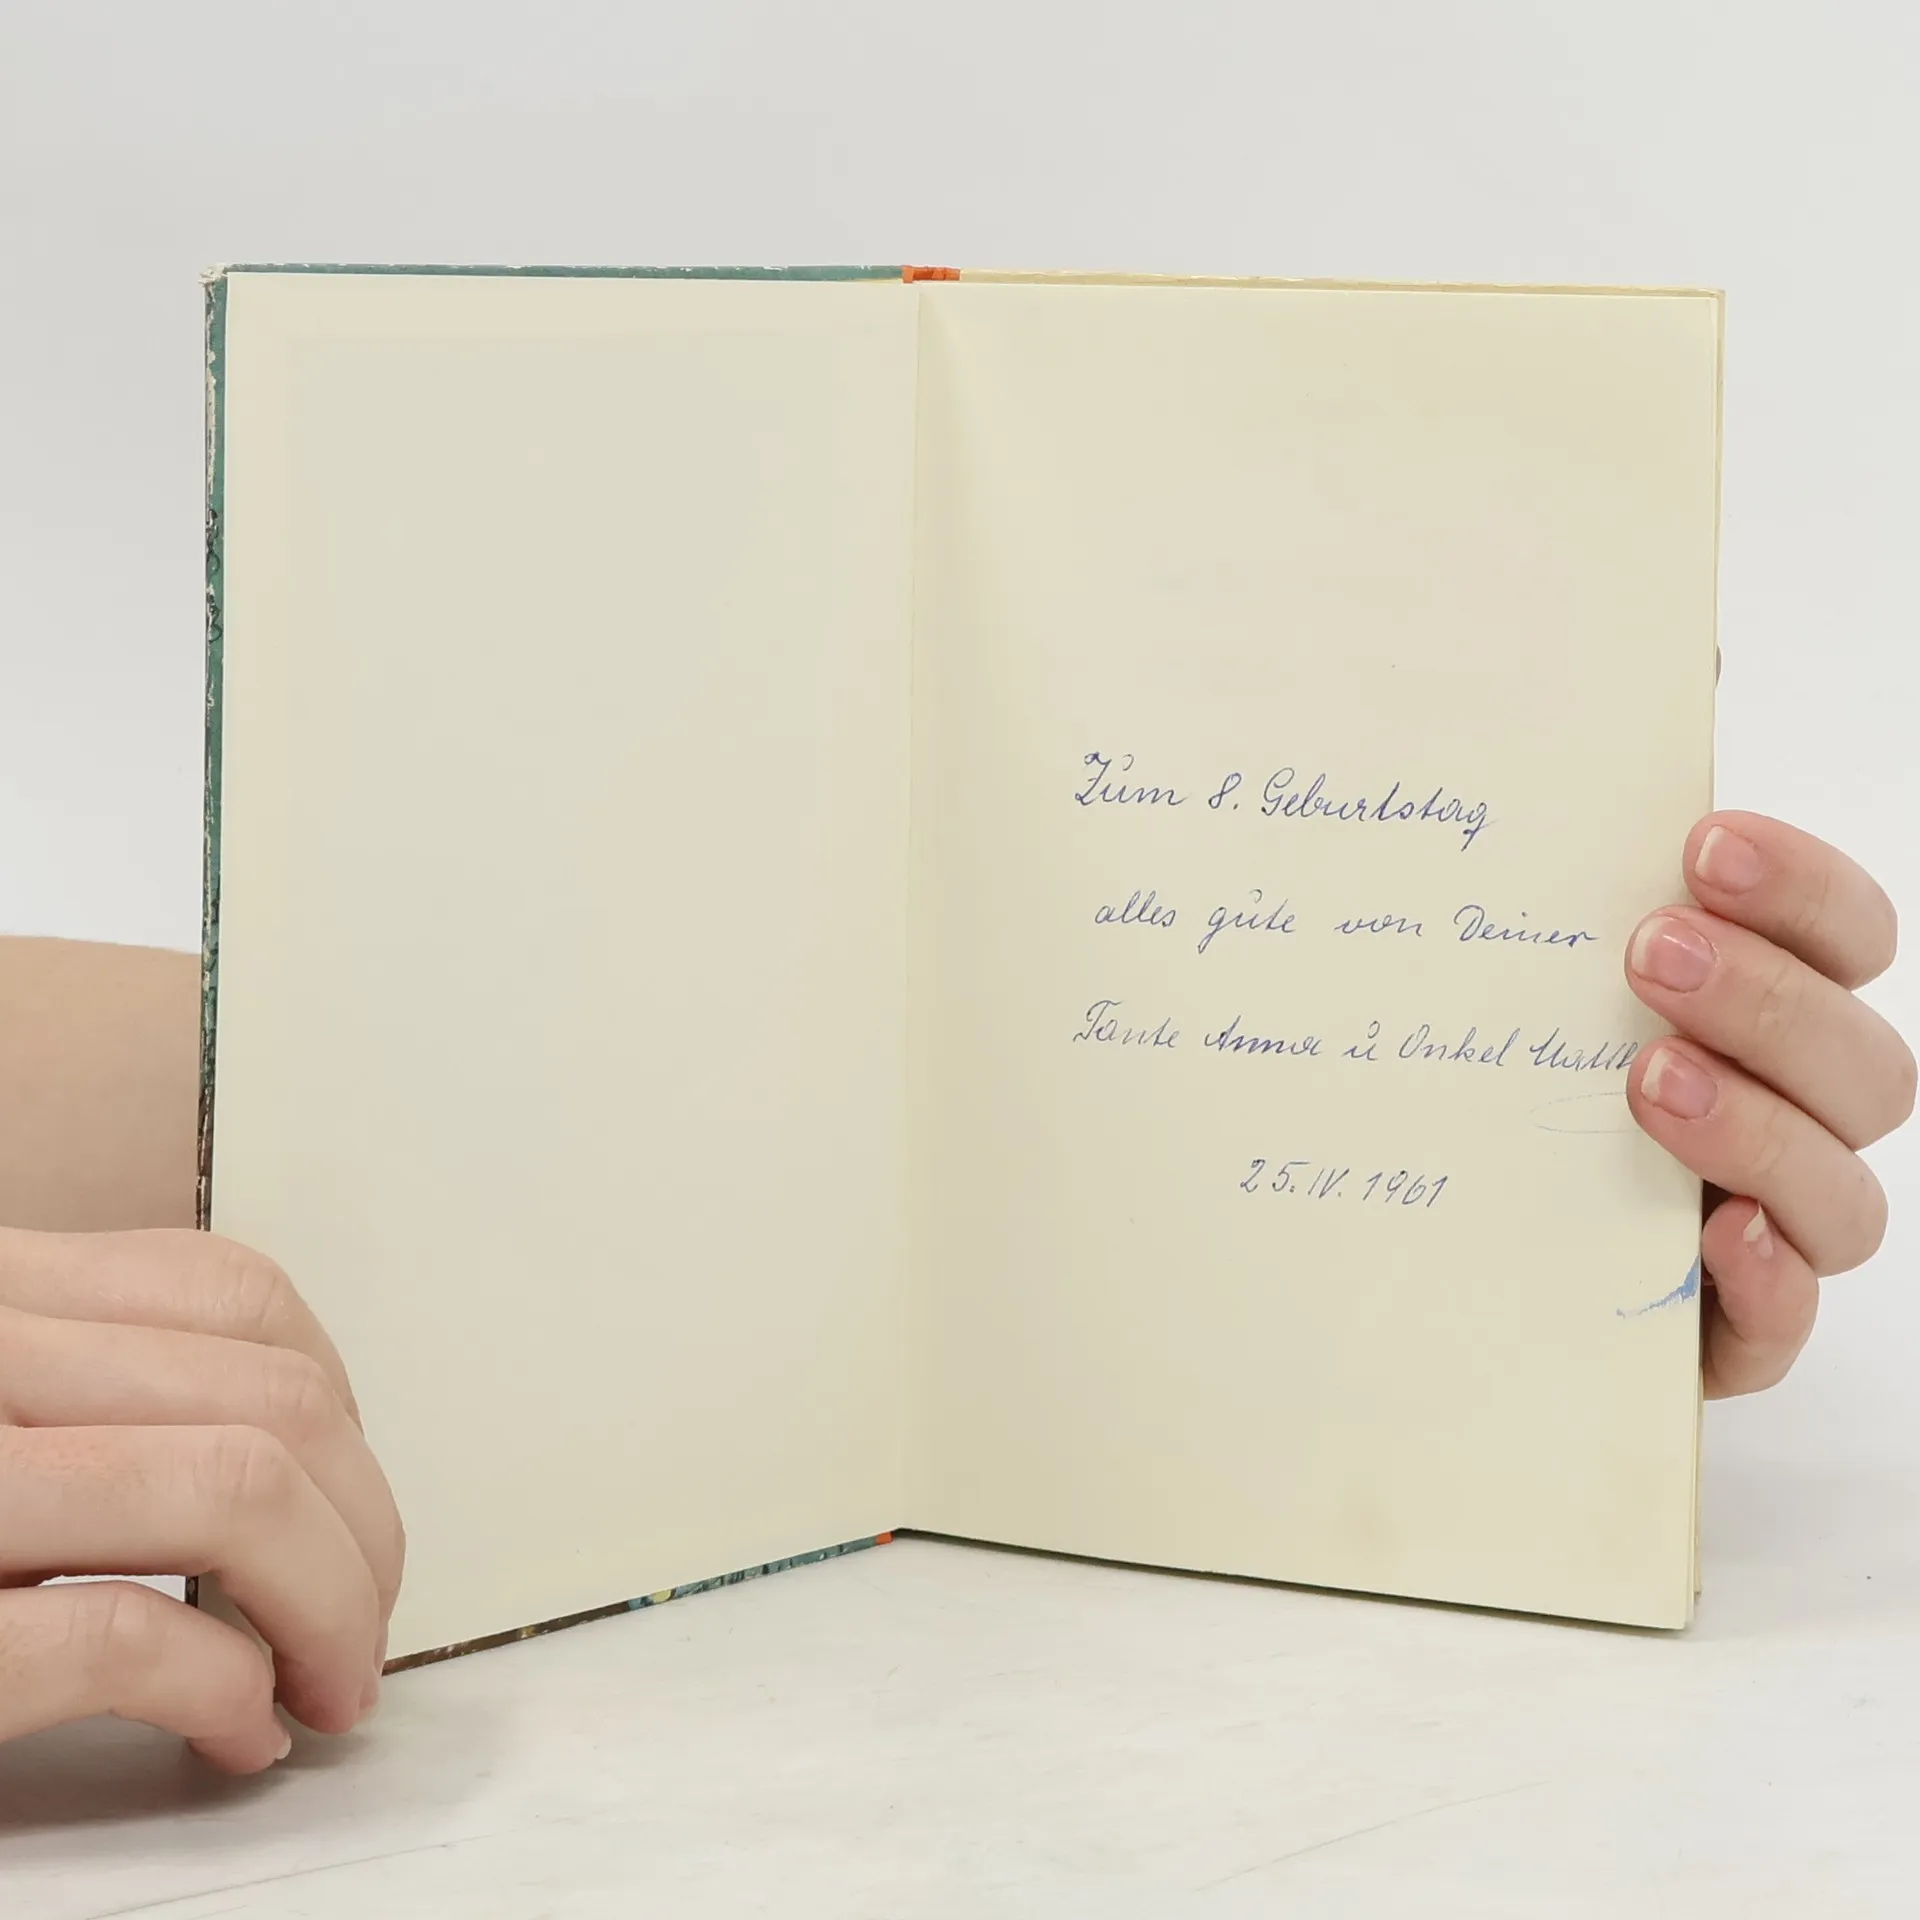 Zum 8. Geburtstag
alles gute von Deiner
Tante Anna u Onkel
25. IV. 1961